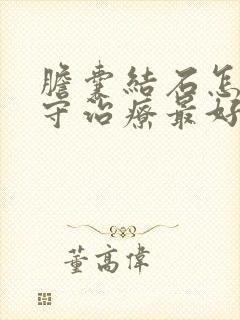 膽囊結石怎
守治療最好
董高偉